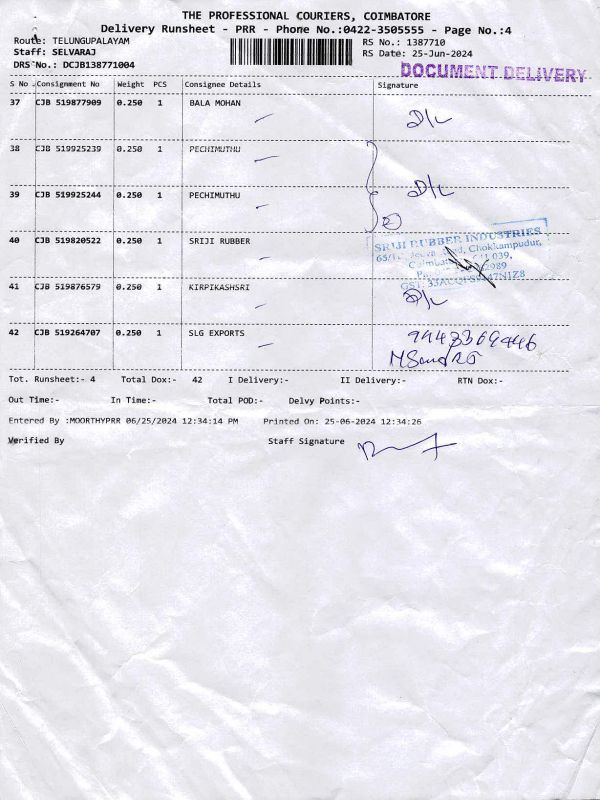 THE PROFESSIONAL COURIERS, COIMBATORE
Delivery Runsheet - PRR - Phone No.:0422-3505555 - Page No.:4
Route: TELUNGUPALAYAM RS No.: 1387710
Staff: SELVARAJ RS Date: 25-Jun-2024
DRS No.: DCJB138771004
DOCUMENT DELIVERY
S No Consignment No Weight PCS Consignee Details Signature
37 CJB 519877909 0.250 1 BALA MOHAN D/L
38 CJB 519925239 0.250 1 PECHIMUTHU
39 CJB 519925244 0.250 1 PECHIMUTHU D/L
2
40 CJB 519820522 0.250 1 SRIJI RUBBER
SRIJI RUBBER INDUSTRIES
Road, Chokkampudur,
039,
41 CJB 519876579 0.250 1 KIRPIKASHSRI D/L
42 CJB 519264707 0.250 1 SLG EXPORTS
Tot. Runsheet:- 4 Total Dox:- 42 I Delivery:- II Delivery:- RTN Dox:-
Out Time:- In Time:- Total POD:- Delvy Points:-
Entered By :MOORTHYPRR 06/25/2024 12:34:14 PM Printed On: 25-06-2024 12:34:26
Verified By Staff Signature